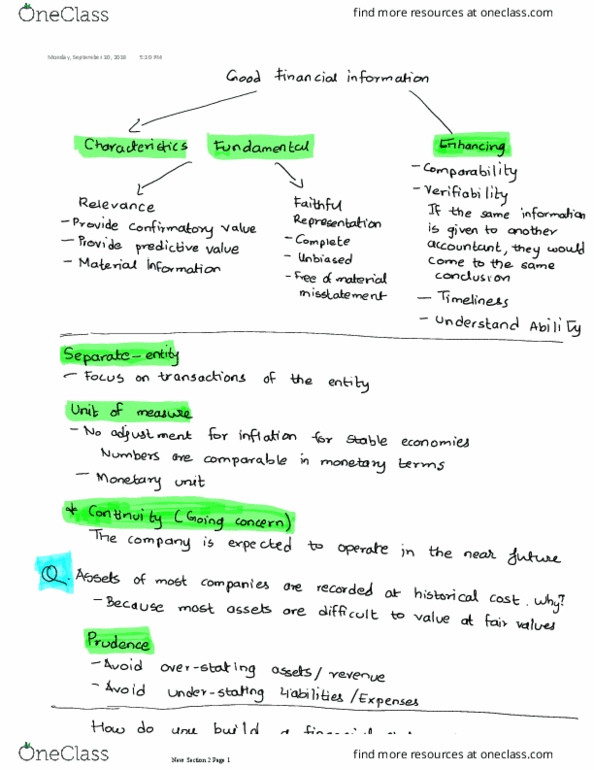 OneClass
find more resources at oneclass.com
Monday, September 10, 2018 5:10 PM
Good Financial information
Characteristics Fundamental Enhancing
Relevance
- Provide confirmatory value
- Provide predictive value
- Material Information
Faithful
Representation
- Complete
- Unbiased
- Free of material
misstatement
- Comparability
- Verifiability
If the same information
is given to another
accountant, they would
come to the same
conclusion
- Timeliness
- Understand Ability
Separate-entity
- Focus on transactions of the entity
Unit of measure
- No adjustment for inflation for stable economies
Numbers are comparable in monetary terms
- Monetary unit
* Continuity (Going concern)
The company is expected to operate in the near future
Q. Assets of most companies are recorded at historical cost. Why?
- Because most assets are difficult to value at fair values
Prudence
- Avoid over-stating assets/revenue
- Avoid under-stating Liabilities/Expenses
How do you build a financial
OneClass
New Section 2 Page 1
find more resources at oneclass.com